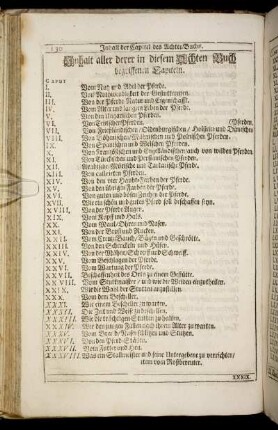 130 Inhalt der Capitel des Achten Buchs.
Inhalt aller derer in diesem Achten Buch
begriffenen Capiteln.
Caput
I. Vom Nutz und Adel der Pferde.
II. Von Nothwendigkeit der Gestüttereyen.
III. Von der Pferde Natur und Eigenschafft.
IV. Vom Alter und langen Leben der Pferde.
V. Von den Ungarischen Pferden.
VI. Von Teutschen Pferden. (Pferden.
VII. Von Frießländischen / Oldenburgischen / Holstein- und Dänischen
VIII. Von Böhmischen / und Polnischen Pferden.
IX. Von Spanischen und Welschen Pferden.
X. Von Frantzösischen und Engelländischen auch von wilden Pferden
XI. Von Türckischen und Persianischen Pferden.
XII. Moscowitische und Tartarische Pferde.
XIII. Von Pferden.
XIV. Von den vier Haubt-Farben der Pferde.
XV. Von den übrigen Farben der Pferde.
XVI. Von guten und bösen Zeichen der Pferde.
XVII. Wie ein schön und gutes Pferd soll beschaffen seyn.
XVIII. Von der Pferde Augen.
XIX. Vom Kopf und Hals.
XX. Vom Maul / Ohren und Nasen.
XXI. Von der Brust und Rucken.
XXII. Vom Creutz / Bauch / und Geschrötte.
XXIII. Von den Schenckeln und Hüfen.
XXIV. Von der Mähne / Schopf und Schweiff.
XXV. Vom Beschlagen der Pferde.
XXVI. Von Wartung der Pferde.
XXVII. Beschaffenheit des Orts zu einem Gestütte.
XXVIII. Vom Stuttmeister / und wie die Weiden anzustellen.
XXIX. Wie die Wahl der Stutten anzustellen.
XXX. Von dem Bescheller.
XXXI. Wie einem Bescheller zu warten.
XXXII. Die Zeit und Weise zu beschellen.
XXXIII. Wie die trächtigen Stutten zu halten.
XXXIV. Wie den jungen Füllen nach ihrem Alter zu warten.
XXXV. Von und Stutzen.
XXXVI. Von den Pferd-Ställen.
XXXVII. Vom Futter und Heu.
XXXVIII. Was ein Stallmeister und seine Untergebene zu verrichten /
item vom Roßbereuter.
XXXIX.